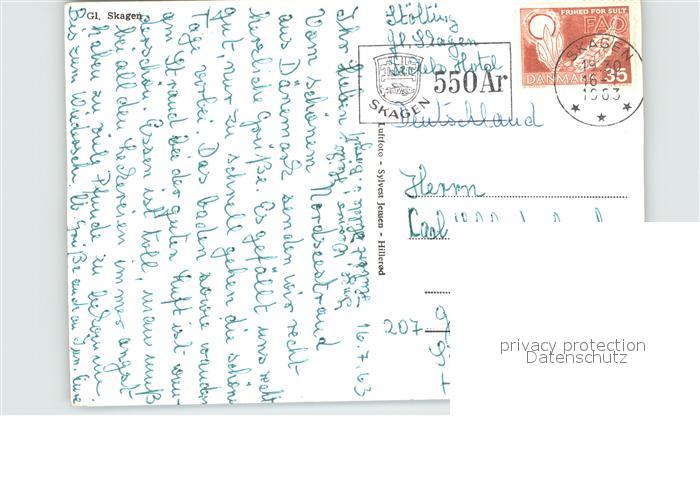 Gl. Skagen
16.7.63
Ihr Lieben
Vom schönen Nordseestrand
aus Dänemark senden wir recht
herzliche Grüße. Es gefällt uns recht
gut, nur zu schnell gehen die schönen
Tage vorbei. Das baden sowie wandern
am Strand bei der guten Luft ist wun-
derschön. Essen ist toll, man muß
bei all den Leckereien immer angst
haben zu viel Pfunde zu
Bis zum Wiederseh.
Luftfoto - Sylvest Jensen - Hillerød
Stölting
Gl. Skagen
Hotel
SKAGEN
550 År
FRIHED FOR SULT
FAO
DANMARK 35
SKAGEN
16
1963
Deutschland
Herrn
Carl
207
privacy protection
Datenschutz